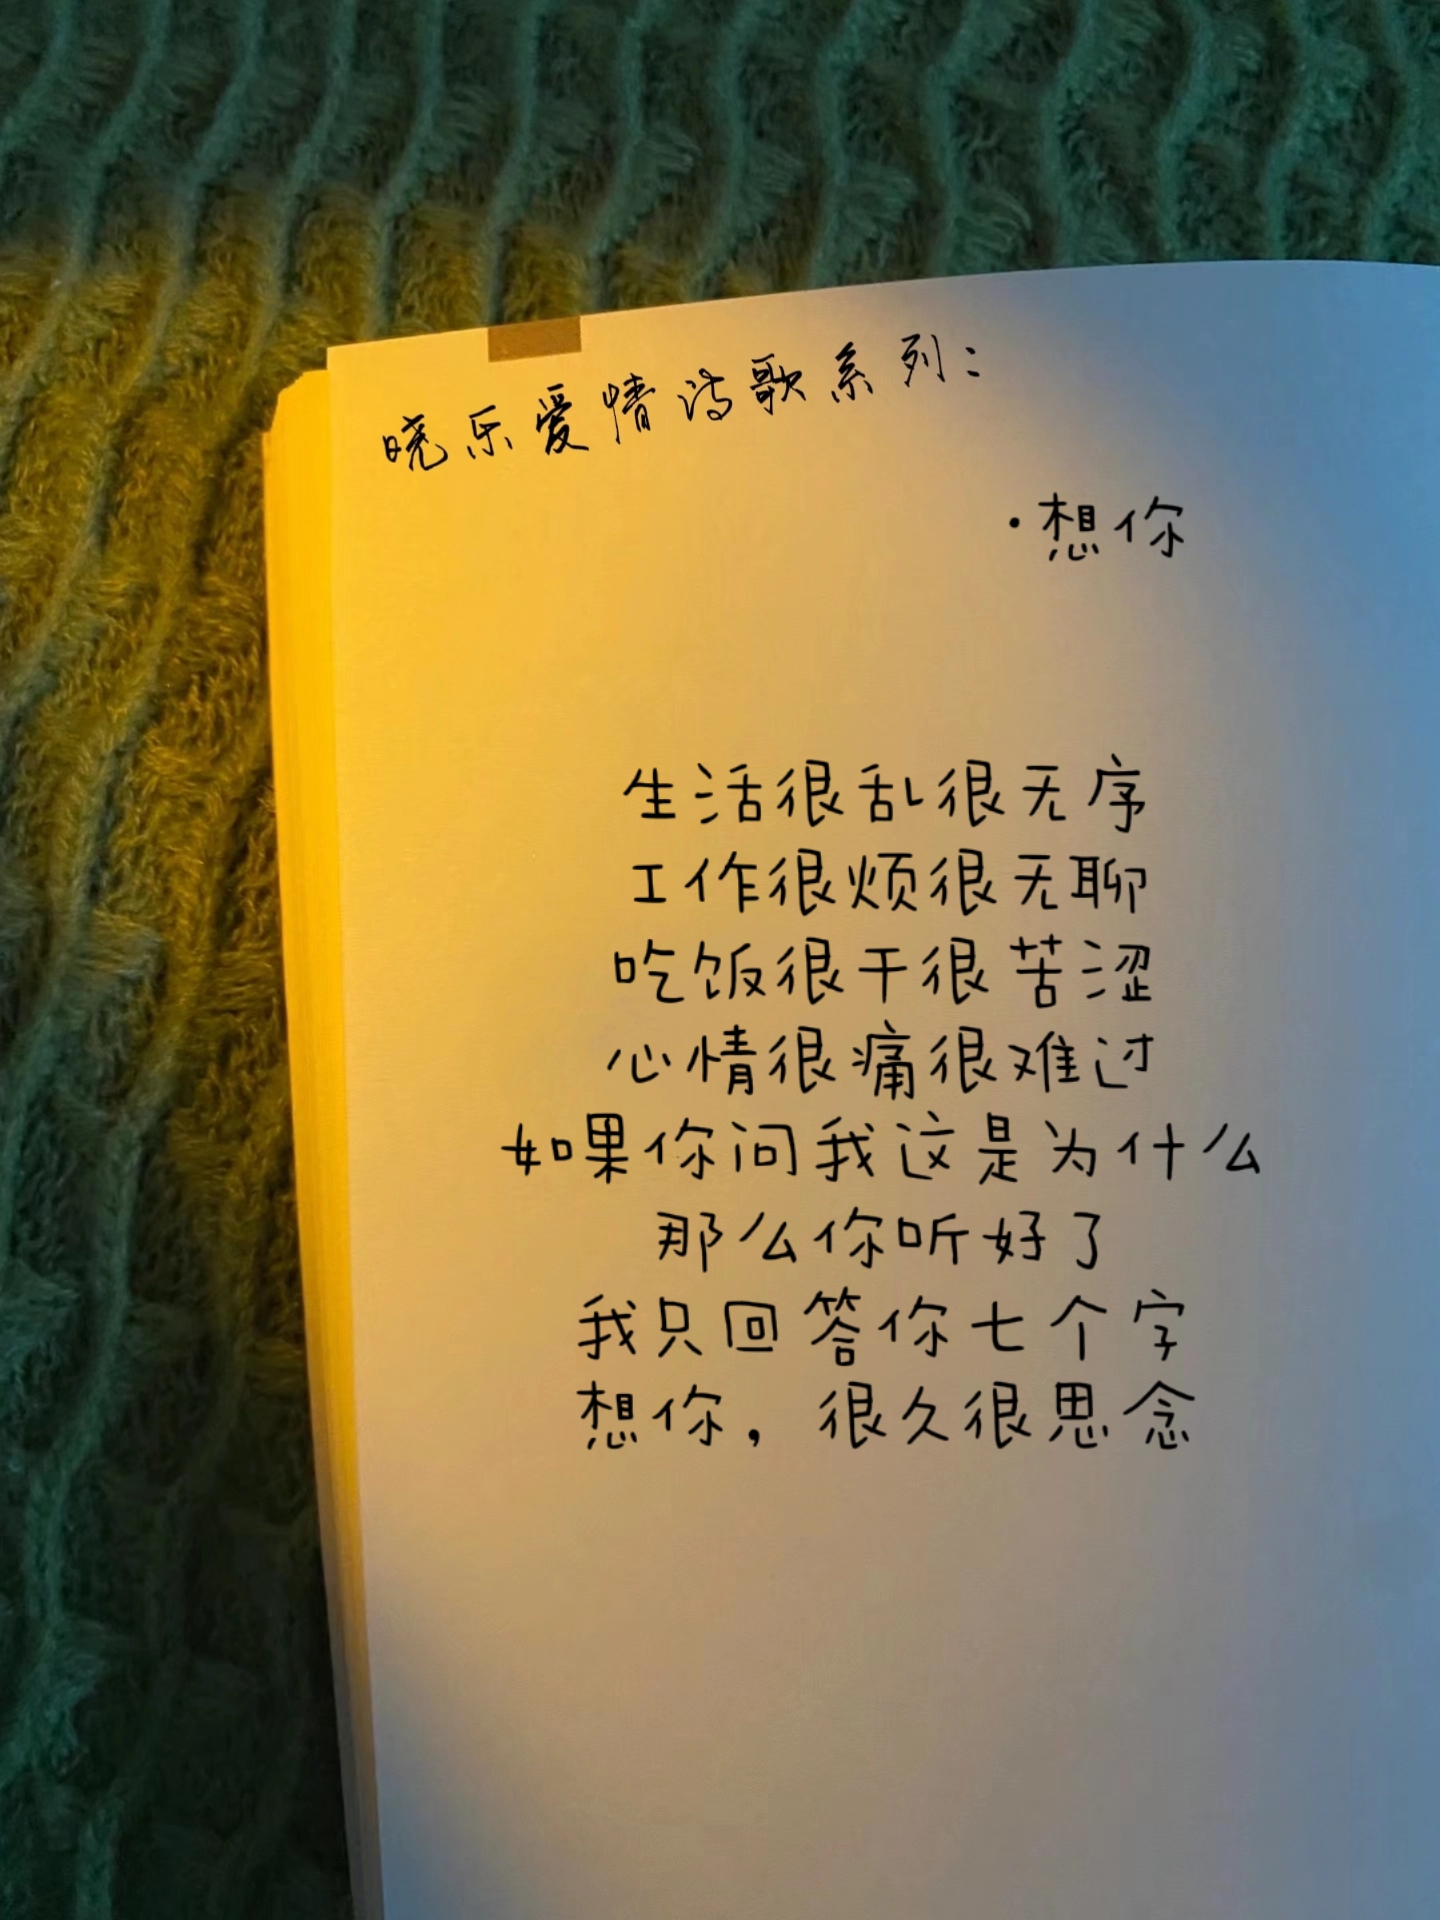 晓乐爱情诗歌系列：
·想你
生活很乱很无序
工作很烦很无聊
吃饭很干很苦涩
心情很痛很难过
如果你问我这是为什么
那么你听好了
我只回答你七个字
想你，很久很思念